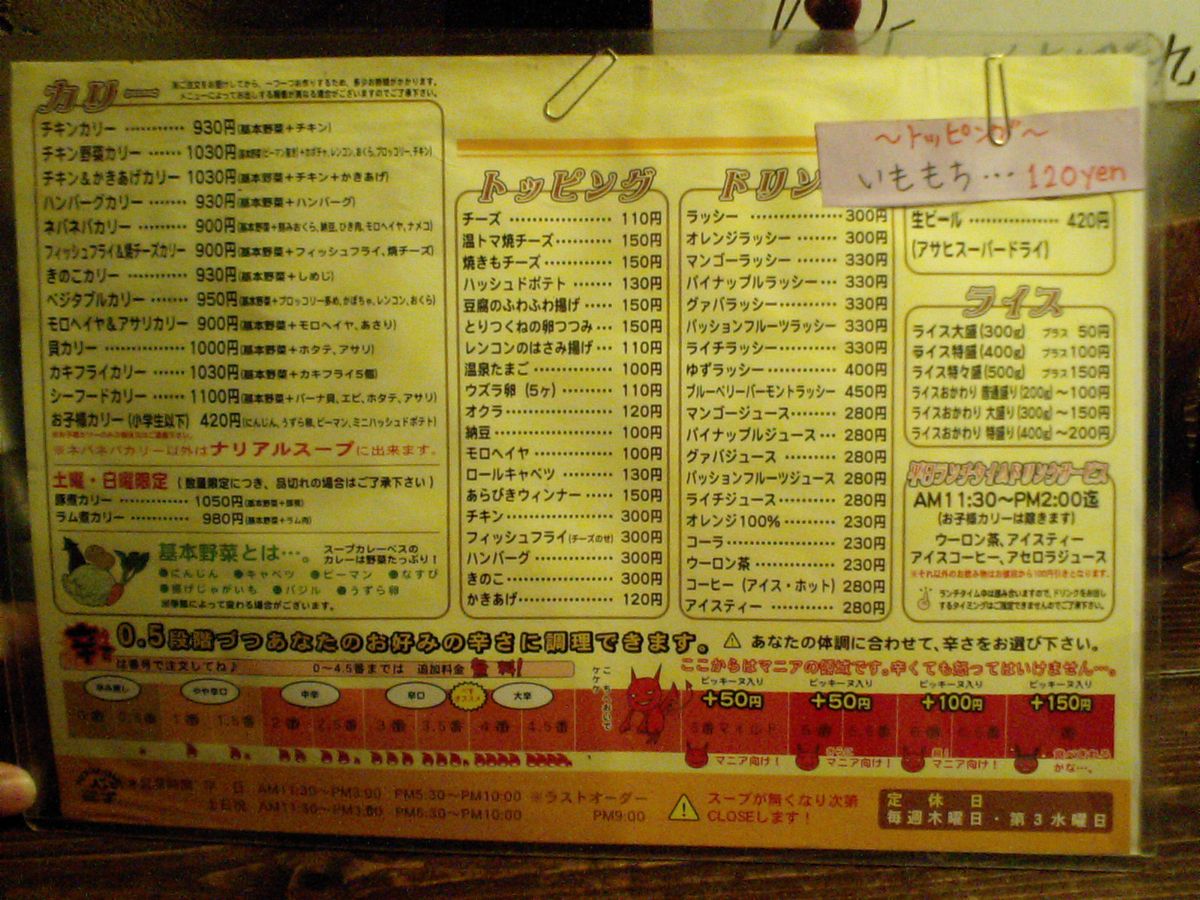 カリー
※ご注文をお受けしてから、一つ一つお作りするため、多少お時間がかかります。
メニューによってお出しする時間が異なる場合がございますのでご了承下さい。
チキンカリー ………… 930円(基本野菜+チキン)
チキン野菜カリー …… 1030円(基本野菜(ピーマン抜き)+カボチャ、レンコン、おくら、ブロッコリー、チキン)
チキン&かきあげカリー 1030円(基本野菜+チキン+かきあげ)
ハンバーグカリー …… 930円(基本野菜+ハンバーグ)
ネバネバカリー ……… 900円(基本野菜+刻みおくら、納豆、ひき肉、モロヘイヤ、ナメコ)
フィッシュフライ&焼チーズカリー 900円(基本野菜+フィッシュフライ、焼チーズ)
きのこカリー ………… 930円(基本野菜+しめじ)
ベジタブルカリー …… 950円(基本野菜+ブロッコリー多め、かぼちゃ、レンコン、おくら)
モロヘイヤ&アサリカリー 900円(基本野菜+モロヘイヤ、あさり)
貝カリー …………… 1000円(基本野菜+ホタテ、アサリ)
カキフライカリー …… 1030円(基本野菜+カキフライ5個)
シーフードカリー …… 1100円(基本野菜+パーナ貝、エビ、ホタテ、アサリ)
お子様カリー(小学生以下) 420円(にんじん、うずら卵、ピーマン、ミニハッシュドポテト)
※ネバネバカリー以外はナリアルスープに出来ます。
土曜・日曜限定(数量限定につき、品切れの場合はご了承下さい)
豚煮カリー ………… 1050円(基本野菜+豚角)
ラム煮カリー ………… 980円(基本野菜+ラム肉)
基本野菜とは…。
スープカレーベスの
カレーは野菜たっぷり!
●にんじん ●キャベツ ●ピーマン ●なすび
●揚げじゃがいも ●バジル ●うずら卵
※季節によって変わる場合がございます。
トッピング
チーズ ……………… 110円
温トマ焼チーズ ……… 150円
焼きもチーズ ………… 150円
ハッシュドポテト …… 130円
豆腐のふわふわ揚げ …… 150円
とりつくねの卵つつみ … 150円
レンコンのはさみ揚げ … 110円
温泉たまご ………… 100円
ウズラ卵(5ヶ) ……… 110円
オクラ ……………… 120円
納豆 ………………… 100円
モロヘイヤ ………… 100円
ロールキャベツ ……… 130円
あらびきウィンナー …… 150円
チキン ……………… 300円
フィッシュフライ(チーズのせ) 300円
ハンバーグ ………… 300円
きのこ ……………… 300円
かきあげ …………… 120円
ドリン
ラッシー …………… 300円
オレンジラッシー …… 300円
マンゴーラッシー …… 330円
パイナップルラッシー … 330円
グァバラッシー ……… 330円
パッションフルーツラッシー 330円
ライチラッシー ……… 330円
ゆずラッシー ……… 400円
ブルーベリーバーモントラッシー 450円
マンゴージュース …… 280円
パイナップルジュース … 280円
グァバジュース ……… 280円
パッションフルーツジュース 280円
ライチジュース ……… 280円
オレンジ100% ……… 230円
コーラ ……………… 230円
ウーロン茶 ………… 230円
コーヒー(アイス・ホット) 280円
アイスティー ……… 280円
～トッピング～
いももち … 120yen
生ビール ………… 420円
(アサヒスーパードライ)
ライス
ライス大盛(300g) プラス 50円
ライス特盛(400g) プラス100円
ライス特々盛(500g) プラス150円
ライスおかわり 普通盛り(200g)～100円
ライスおかわり 大盛り(300g)～150円
ライスおかわり 特盛り(400g)～200円
平日ランチタイムドリンクサービス
AM11:30～PM2:00迄
(お子様カリーは除きます)
ウーロン茶、アイスティー
アイスコーヒー、アセロラジュース
※それ以外のお飲み物はお値段から100円引きとなります。
ランチタイム中は混み合いますので、ドリンクをお出し
するタイミングはご指定できませんのでご了承下さい。
0.5段階づつあなたのお好みの辛さに調理できます。
あなたの体調に合わせて、辛さをお選び下さい。
は番号で注文してね♪
0～4.5番までは 追加料金 無料!
ここからはマニアの領域です。辛くても怒ってはいけません…。
やや辛口 中辛 辛口 大辛
ピッキーヌ入り +50円
ピッキーヌ入り +50円
ピッキーヌ入り +100円
ピッキーヌ入り +150円
0番 0.5番 1番 1.5番 2番 2.5番 3番 3.5番 4番 4.5番 5番マイルド
マニア向け!
マニア向け!
マニア向け!
※営業時間 平 日 AM11:30～PM3:00 PM5:30～PM10:00 ※ラストオーダー
土日祝 AM11:30～PM3:00 PM5:30～PM10:00 PM9:00
スープが無くなり次第
CLOSEします!
定休日
毎週木曜日・第3水曜日